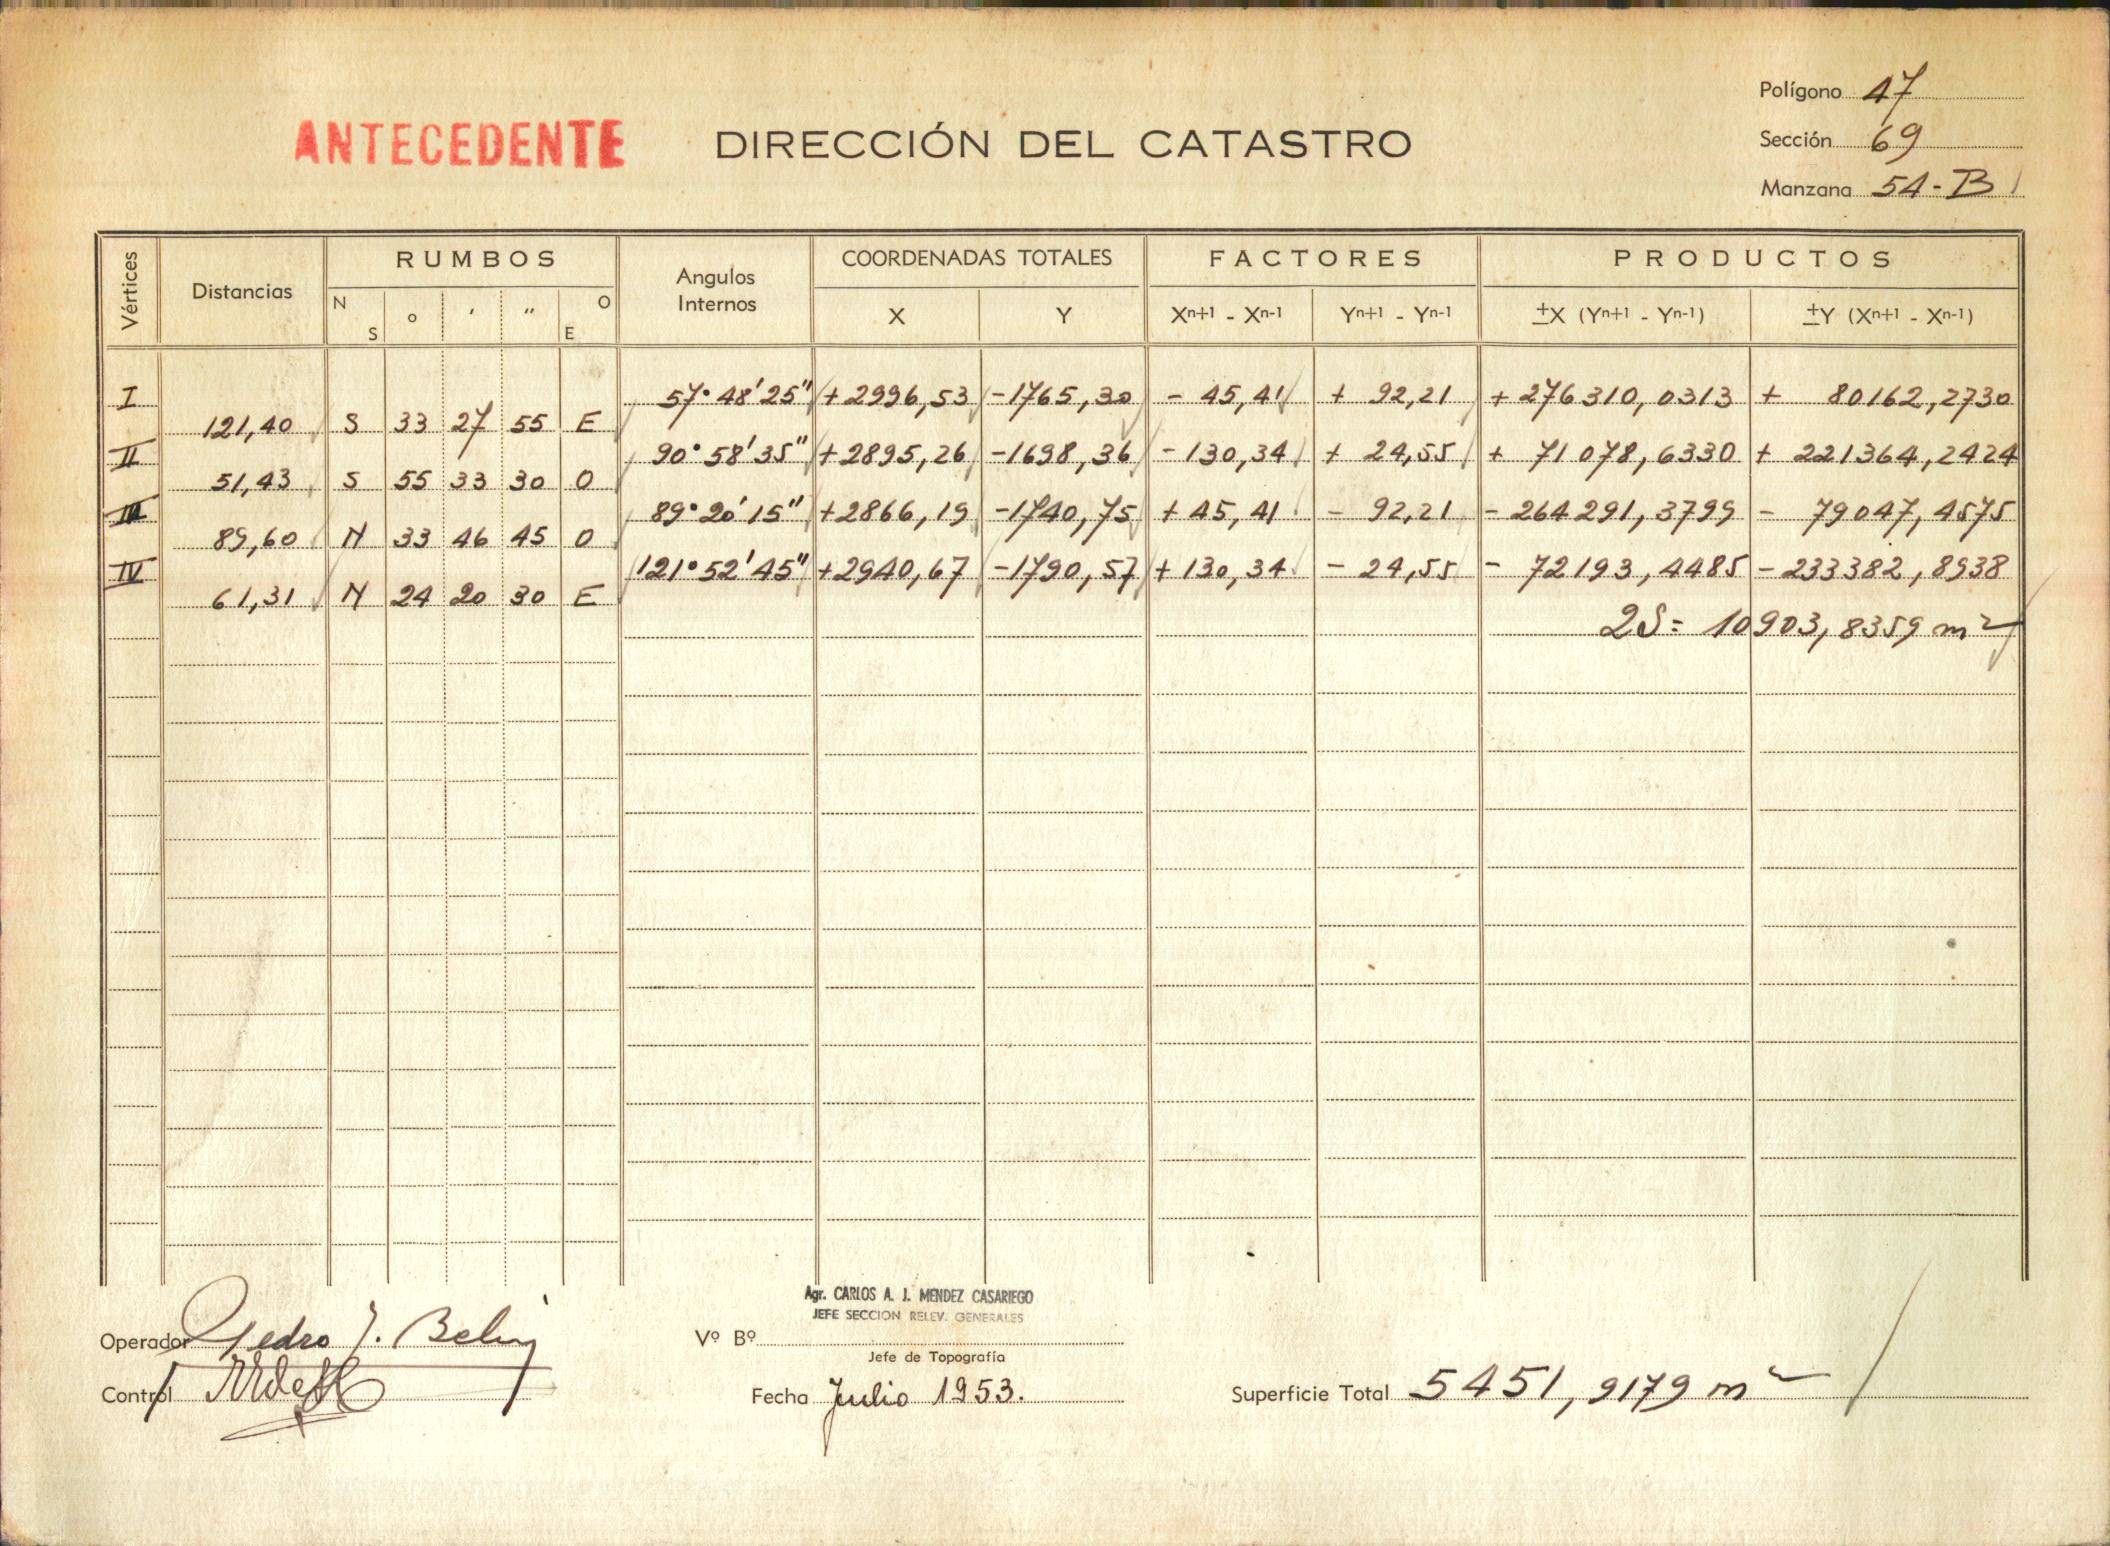 Polígono 47
ANTECEDENTE DIRECCIÓN DEL CATASTRO
Sección 69
Manzana 54-B
Vértices Distancias RUMBOS Angulos Internos COORDENADAS TOTALES FACTORES PRODUCTOS
N S ° ' " O E X Y Xn+1 - Xn-1 Yn+1 - Yn-1 ±X (Yn+1 - Yn-1) ±Y (Xn+1 - Xn-1)
I 57° 48' 25" +2996,53 -1765,30 - 45,41 + 92,21 + 276310,0313 + 80162,2730
121,40 S 33 27 55 E
II 90° 58' 35" +2895,26 -1698,36 - 130,34 + 24,55 + 71078,6330 + 221364,2424
51,43 S 55 33 30 O
III 89° 20' 15" +2866,19 -1740,75 + 45,41 - 92,21 - 264291,3799 - 79047,4575
89,60 N 33 46 45 O
IV 121° 52' 45" +2940,67 -1790,57 + 130,34 - 24,55 - 72193,4485 - 233382,8938
61,31 N 24 20 30 E
2S = 10903,8359 m2
Agr. CARLOS A. J. MENDEZ CASARIEGO
JEFE SECCION RELEV. GENERALES
Operador Pedro J. Vº Bº
Jefe de Topografía
Control Fecha Julio 1953. Superficie Total 5451,9179 m2